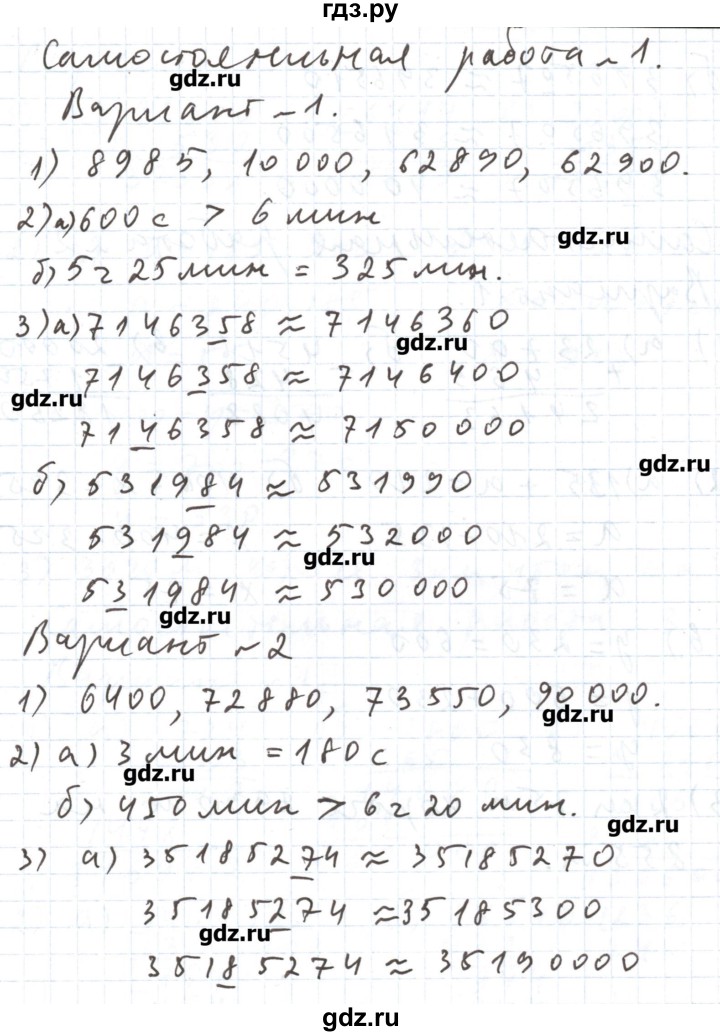 гдз.ру
Самостоятельная работа ~ 1.
gdz.ru
Вариант ~ 1.
1) 8985, 10 000, 62890, 62900.
2) а) 600 с > 6 мин
gdz.ru
б) 5 ч 25 мин = 325 мин.
3) а) 7146358 ≈ 7146360
gdz.ru
7146358 ≈ 7146400
gdz.ru
7146358 ≈ 7150000
gdz.ru
б) 531984 ≈ 531990
531984 ≈ 532000
gdz.ru
531984 ≈ 530000
gdz.ru
Вариант ~ 2
1) 6400, 72880, 73550, 90000.
gdz.ru
2) а) 3 мин = 180 с
gdz.ru
б) 450 мин > 6 ч 20 мин.
gdz.ru
3) а) 35185274 ≈ 35185270
35185274 ≈ 35185300
gdz.ru
35185274 ≈ 35190000
gdz.ru